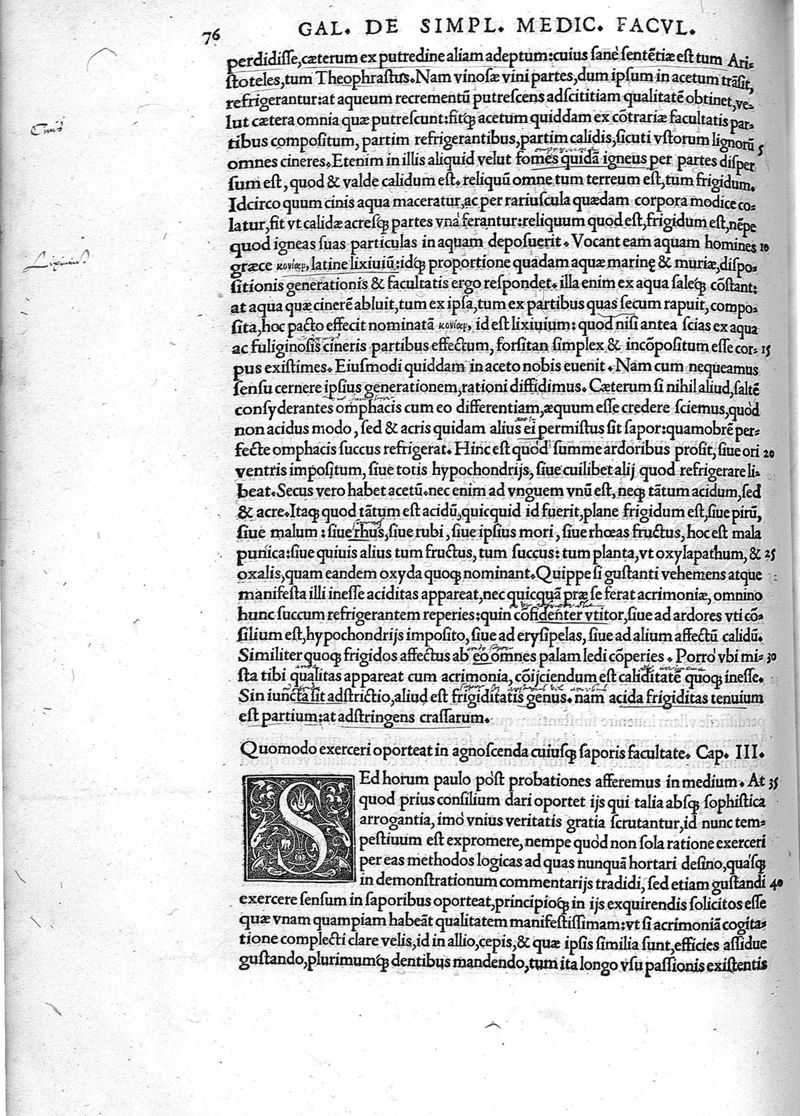 76 GAL. DE SIMPL. MEDIC. FACVL.
perdidiſſe,cæterum ex putredine aliam adeptum:cuius ſanè ſentẽtiæ eſt tum Ari-
ſtoteles,tum Theophraſtus. Nam vinoſæ vini partes,dum ipſum in acetum trãſit,
refrigerantur:at aqueum recrementũ putreſcens adſcititiam qualitatẽ obtinet,ve-
lut cætera omnia quæ putreſcunt:fitq́ꝫ acetum quiddam ex cõtrariæ facultatis par-
tibus compoſitum, partim refrigerantibus,partim calidis,ſicuti vſtorum lignorũ 5
omnes cineres. Etenim in illis aliquid velut fomes quidã igneus per partes diſper
ſum eſt, quod & valde calidum eſt. reliquũ omne tum terreum eſt,tum frigidum.
Idcirco quum cinis aqua maceratur,ac per rariuſcula quædam corpora modice co-
latur,fit vt calidæ acreſq́ꝫ partes vnà ferantur:reliquum quod eſt,frigidum eſt,nẽpe
quod igneas ſuas particulas in aquam depoſuerit. Vocant eam aquam homines 10
græce κονίαν, latine lixiuiũ:idq́ꝫ proportione quadam aquæ marinę & muriæ,diſpo-
ſitionis generationis & facultatis ergo reſpondet. illa enim ex aqua ſaleq́ꝫ cõſtant:
at aqua quæ cinerẽ abluit,tum ex ipſa,tum ex partibus quas ſecum rapuit, compo-
ſita,hoc pacto effecit nominatã κονίαν, id eſt lixiuium: quod niſi antea ſcias ex aqua
ac fuliginoſis cineris partibus effectum, forſitan ſimplex & incõpoſitum eſſe cor- 15
pus exiſtimes. Eiuſmodi quiddam in aceto nobis euenit. Nam cum nequeamus
ſenſu cernere ipſius generationem,rationi diffidimus. Cæterum ſi nihil aliud,ſaltẽ
conſyderantes omphacis cum eo differentiam,æquum eſſe credere ſciemus,quòd
non acidus modo, ſed & acris quidam alius ei permiſtus ſit ſapor:quamobrẽ per-
fecte omphacis ſuccus refrigerat. Hinc eſt quòd ſumme ardoribus proſit, ſiue ori 20
ventris impoſitum, ſiue totis hypochondrijs, ſiue cuilibet alij quod refrigerare li-
beat. Secus vero habet acetũ.nec enim ad vnguem vnũ eſt, neq́ꝫ tãtum acidum,ſed
& acre. Itaq́ꝫ quod tãtum eſt acidũ,quicquid id fuerit,plane frigidum eſt,ſiue pirũ,
ſiue malum: ſiue rhus,ſiue rubi, ſiue ipſius mori, ſiue rhœas fructus, hoc eſt mala
punica:ſiue quiuis alius tum fructus, tum ſuccus: tum planta,vt oxylapathum, & 25
oxalis,quam eandem oxyda quoq́ꝫ nominant. Quippe ſi guſtanti vehemens atque
manifeſta illi ineſſe aciditas appareat,nec quicquã præ ſe ferat acrimoniæ, omnino
hunc ſuccum refrigerantem reperies: quin cõfidenter vtitor,ſiue ad ardores vti cõ-
ſilium eſt,hypochondrijs impoſito, ſiue ad eryſipelas, ſiue ad alium affectũ calidũ.
Similiter quoq́ꝫ frigidos affectus ab eo omnes palam ledi cõperies. Porrò vbi mi- 30
ſta tibi qualitas appareat cum acrimonia, cõijciendum eſt caliditatẽ quoq́ꝫ ineſſe.
Sin iuncta ſit adſtrictio,aliud eſt frigiditatis genus. nam acida frigiditas tenuium
eſt partium:at adſtringens craſſarum.
Quomodo exerceri oporteat in agnoſcenda cuiuſq́ꝫ ſaporis facultate. Cap. III.
SEd horum paulo pòſt probationes afferemus in medium. At 35
quod prius conſilium dari oportet ijs qui talia abſq́ꝫ ſophiſtica
arrogantia, imò vnius veritatis gratia ſcrutantur,id nunc tem-
peſtiuum eſt expromere, nempe quòd non ſola ratione exerceri
per eas methodos logicas ad quas nunquã hortari deſino,quaſq́ꝫ
in demonſtrationum commentarijs tradidi, ſed etiam guſtandi 40
exercere ſenſum in ſaporibus oporteat,principioq́ꝫ in ijs exquirendis ſolicitos eſſe
quæ vnam quampiam habeãt qualitatem manifeſtiſſimam:vt ſi acrimoniã cogita-
tione complecti clare velis,id in allio,cepis,& quæ ipſis ſimilia ſunt,efficies aſſidue
guſtando,plurimumq́ꝫ dentibus mandendo,tum ita longo vſu paſſionis exiſtentis